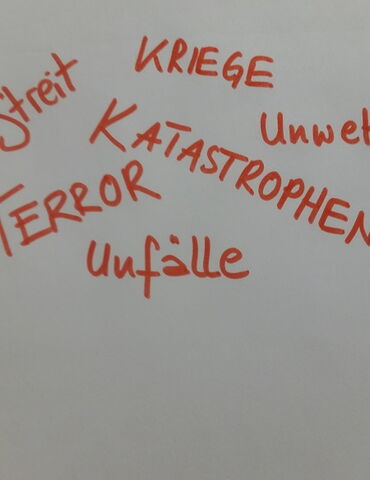 KRIEGE
Streit
Unwet
KATASTROPHEN
TERROR
Unfälle